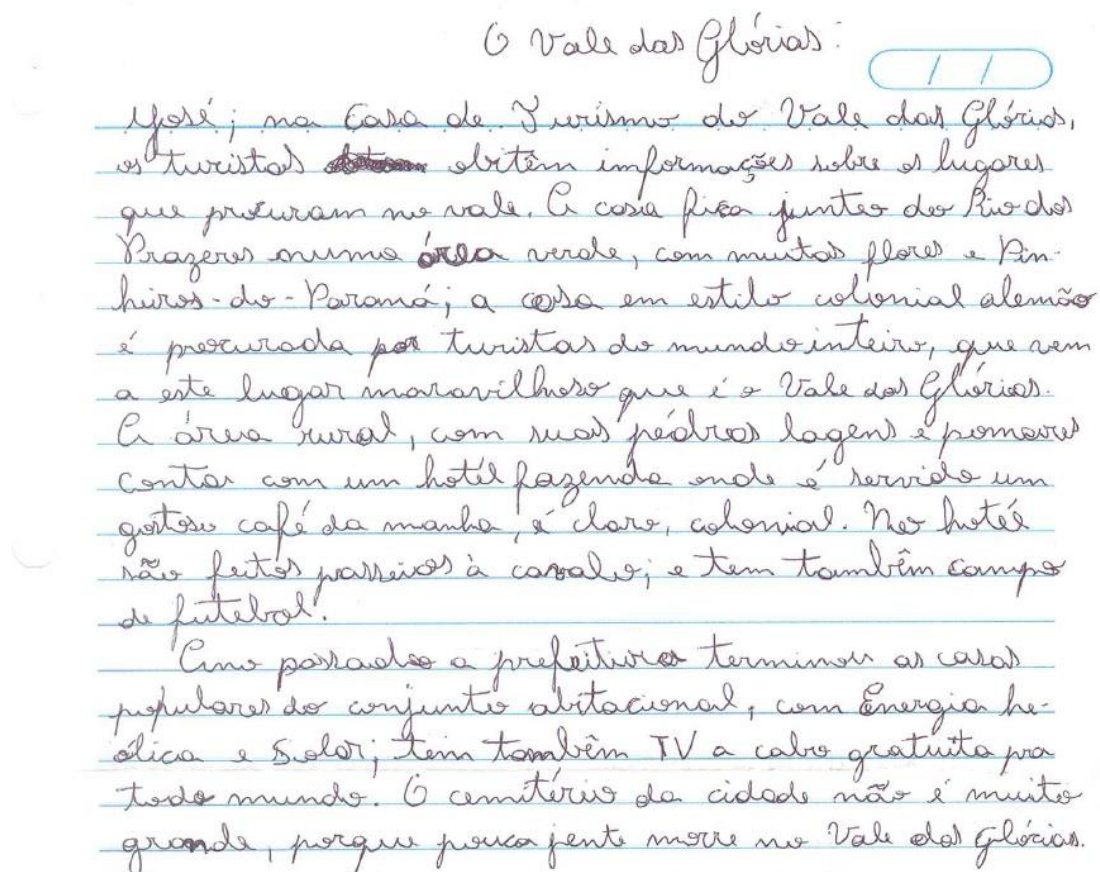 O Vale das Glórias:
/ /
José; na Casa de Turismo do Vale das Glórias,
os turistas obtêm informações sobre os lugares
que procuram no vale. A casa fica junto do Rio dos
Prazeres numa área verde, com muitas flores e Pin-
heiros-do-Paraná; a casa em estilo colonial alemão
é procurada por turistas do mundo inteiro, que vem
a este lugar maravilhoso que é o Vale das Glórias.
A área rural, com suas pedras lagens e pomares
conta com um hotel fazenda onde é servido um
gostoso café da manha, é claro, colonial. No hotel
são feitos passeios à cavalo; e tem tambêm campo
de futebol.
Ano passado a prefeitura terminou as casas
populares do conjunto abitacional, com Energia he-
ólica e Solar; tem tambêm TV a cabo gratuita pra
todo mundo. O cemitério da cidade não é muito
grande, porque pouca jente morre no Vale das Glórias.